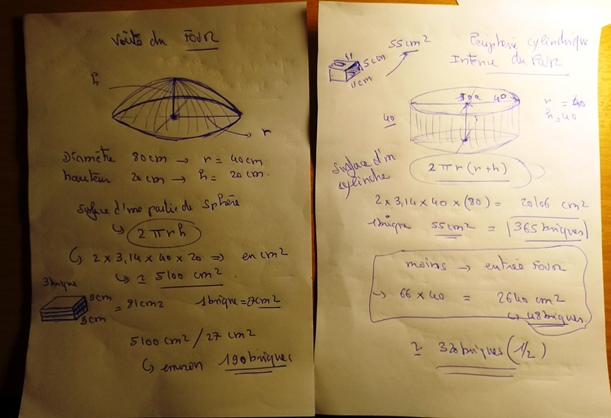 Voûte du Four
h
r
Diamètre 80cm → r = 40cm
hauteur 20cm → h = 20cm
Surface d'une partie de Sphère
↳ 2πrh
↳ 2 x 3,14 x 40 x 20 ⇒ en cm2
↳ ≃ 5100 cm2
3 briques
9cm
9cm
= 81cm2 1 brique = 27cm2
5100 cm2 / 27 cm2
↳ environ 190 briques
Peripherie cylindrique
Interne du Four
55cm2
5cm
11cm
40
40
r = 40
h = 40
Surface d'un
cylindre
2πr(r+h)
2 x 3,14 x 40 x (80) = 20106 cm2
1 brique 55cm2 = 365 briques
moins → entrée Four
→ 66 x 40 = 2640 cm2
↳ 48 briques
≃ 320 briques (1/2)